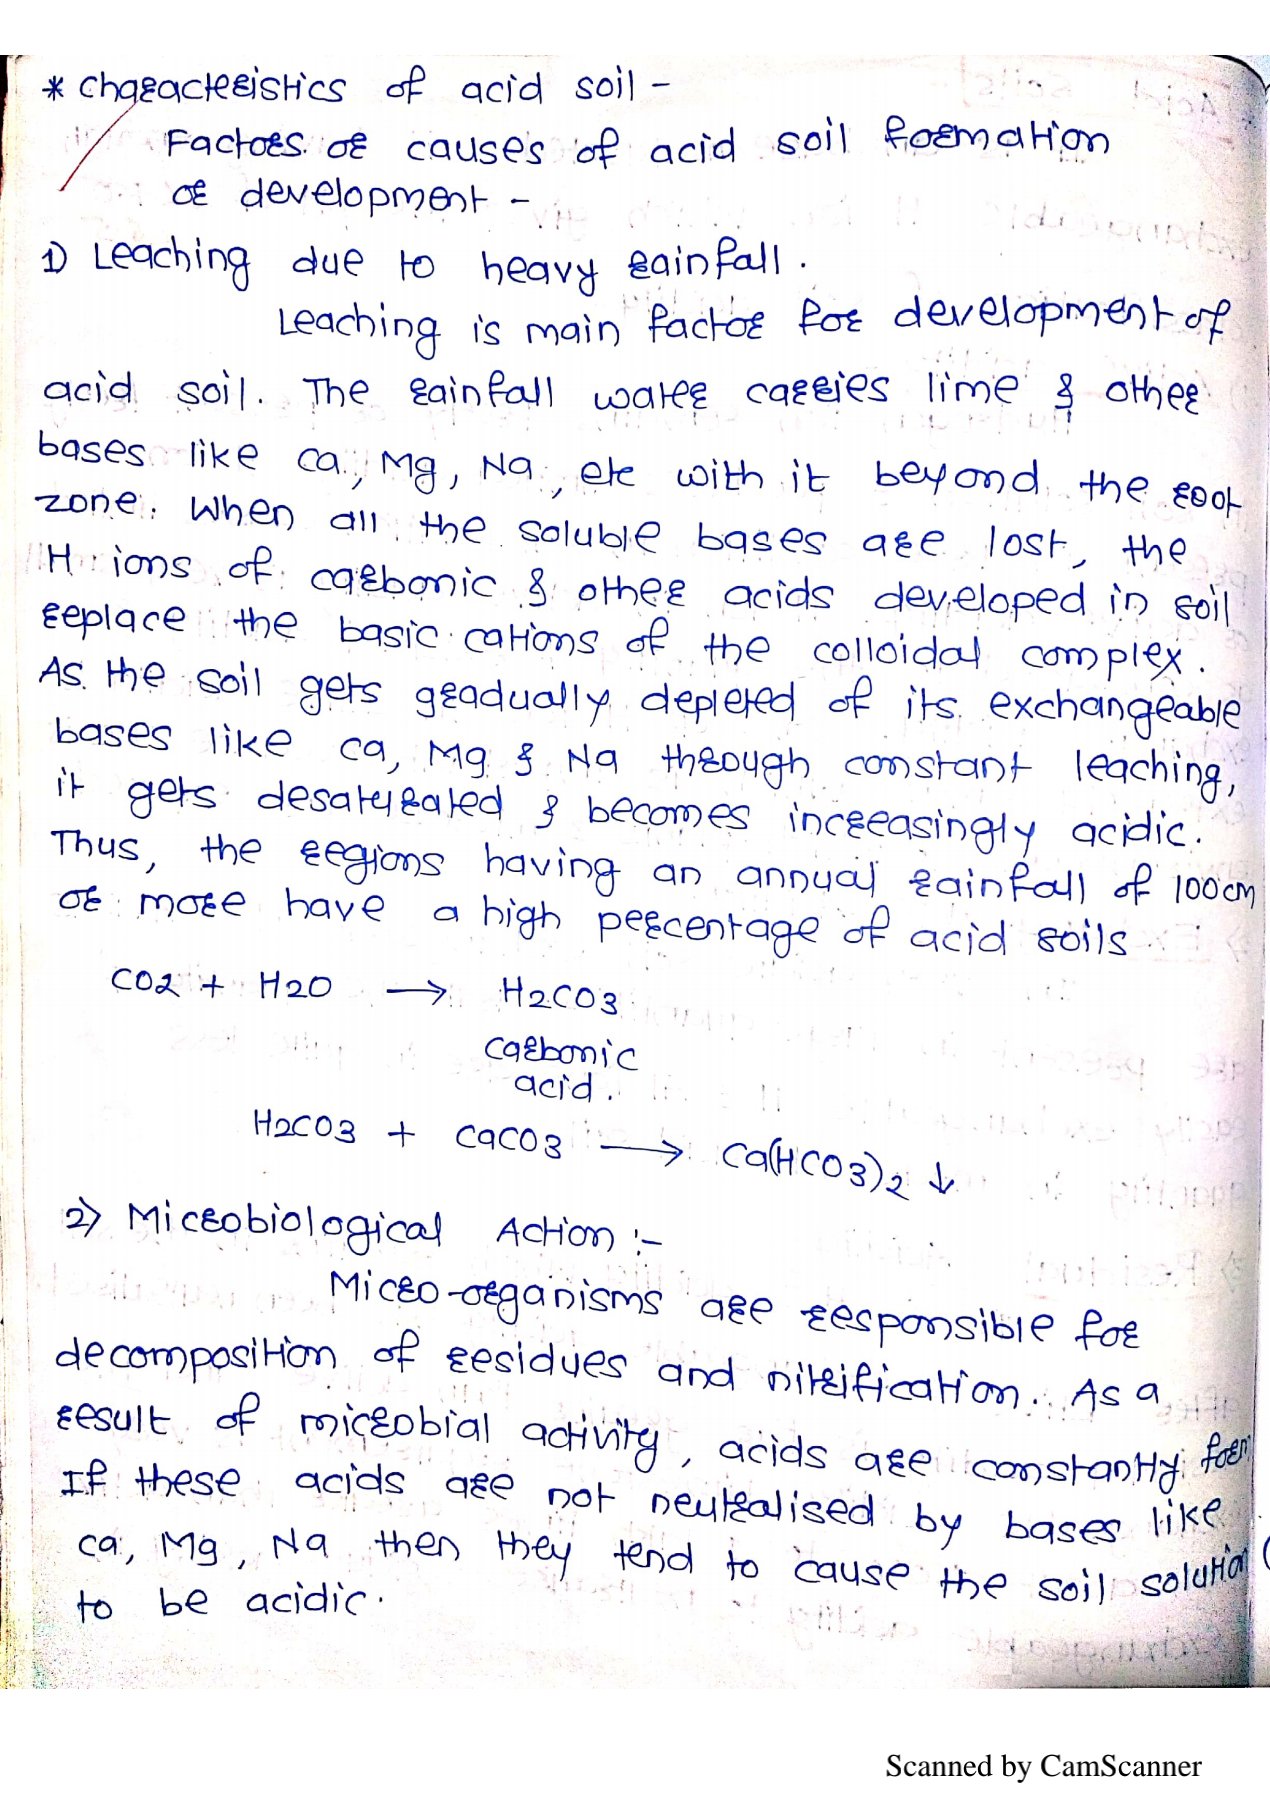 * Characteristics of acid soil -
Factors or causes of acid soil formation
or development -
1) Leaching due to heavy rainfall.
Leaching is main factor for development of
acid soil. The rainfall water carries lime & other
bases like ca, Mg, Na, etc with it beyond the root
zone. When all the soluble bases are lost, the
H ions of carbonic & other acids developed in soil
replace the basic cations of the colloidal complex.
As the soil gets gradually depleted of its exchangeable
bases like ca, Mg & Na through constant leaching,
it gets desaturated & becomes increasingly acidic.
Thus, the regions having an annual rainfall of 100cm
or more have a high percentage of acid soils
CO2 + H2O → H2CO3
carbonic
acid.
H2CO3 + CaCO3 → Ca(HCO3)2 ↓
2) Microbiological Action :-
Micro-organisms are responsible for
decomposition of residues and nitrification. As a
result of microbial activity, acids are constantly
If these acids are not neutralised by bases like
ca, Mg, Na then they tend to cause the soil solution
to be acidic.
Scanned by CamScanner